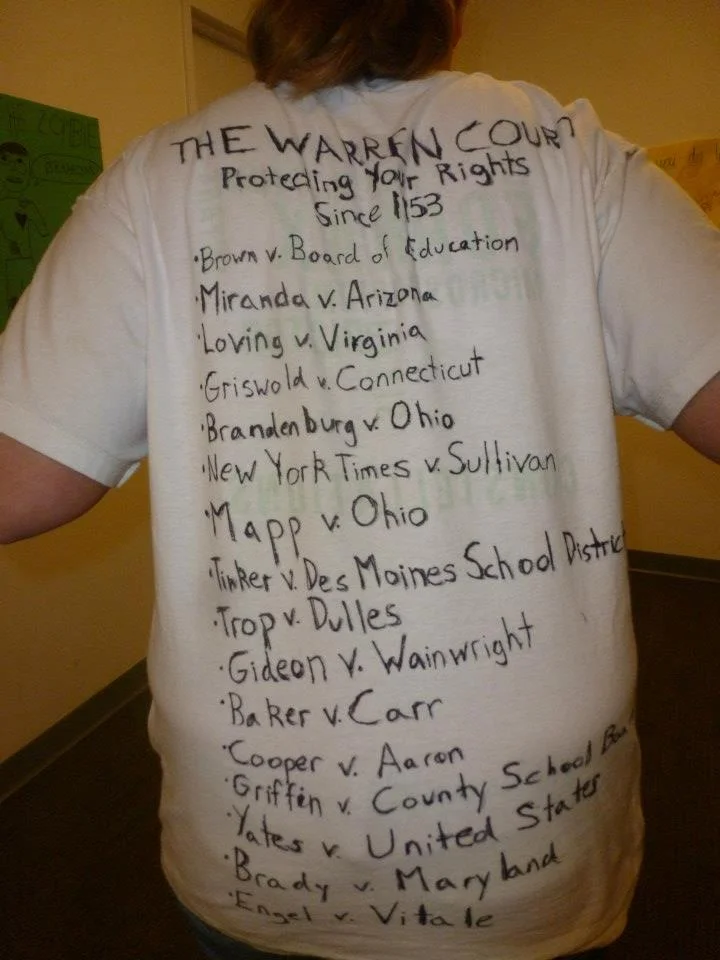 THE WARREN COURT
Protecting Your Rights
Since 1953
·Brown v. Board of Education
·Miranda v. Arizona
·Loving v. Virginia
·Griswold v. Connecticut
·Brandenburg v. Ohio
·New York Times v. Sullivan
·Mapp v. Ohio
·Tinker v. Des Moines School District
·Trop v. Dulles
·Gideon v. Wainwright
·Baker v. Carr
·Cooper v. Aaron
·Griffin v. County School
·Yates v. United States
·Brady v. Maryland
·Engel v. Vitale
ZOMBIE